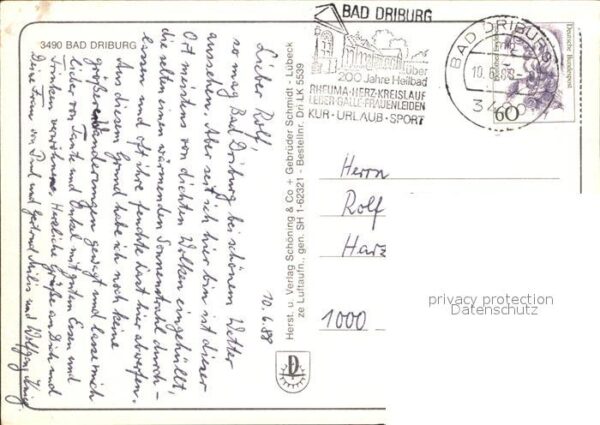 3490 BAD DRIBURG
10.6.88
Lieber Rolf,
so mag Bad Driburg bei schönem Wetter
aussehen. Aber seit ich hier bin ist dieser
Ort meistens von dichten Wolken eingehüllt,
die selten einen wärmenden Sonnenstrahl durch-
lassen und oft ihre feuchte Last hier abwerfen.
Aus diesem Grund habe ich noch keine
größeren Wanderungen gewagt und lasse mich
lieber von Tante und Onkel mit gutem Essen und
Trinken verwöhnen. Herzliche Grüße an Dich und
Deine Frau von Paul und Gertrud und Wolfgang
Herst. u. Verlag Schöning & Co + Gebrüder Schmidt - Lübeck
ze Luftaufn., gen. SH 1-62321 - Bestellnr. Dri LK 5539
BAD DRIBURG
über
200 Jahre Heilbad
RHEUMA-HERZ-KREISLAUF
LEBER-GALLE-FRAUENLEIDEN
KUR - URLAUB - SPORT
BAD DRIBURG
10.6.88
Deutsche Bundespost
60
Herrn
Rolf
Harz
1000
privacy protection
Datenschutz